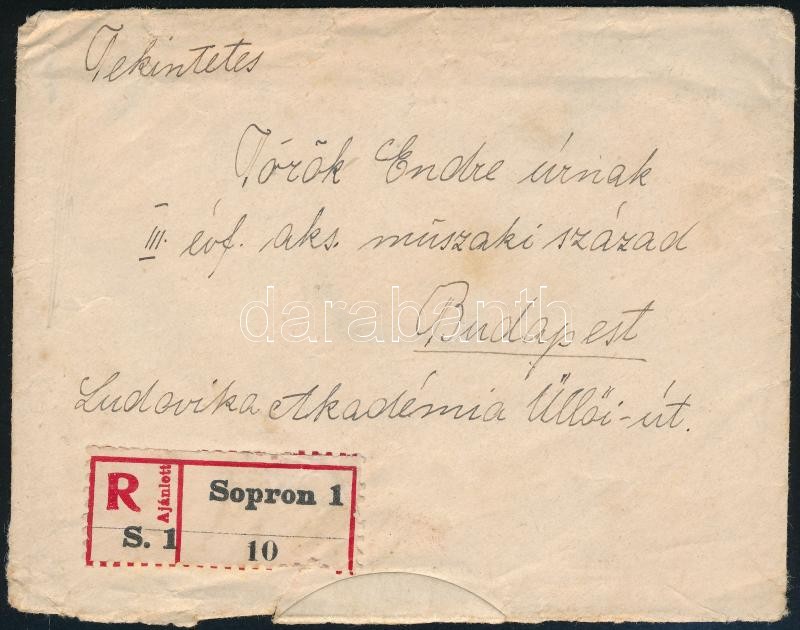 Tekintetes
Török Endre úrnak
III. évf. aks. műszaki század
darabanth
Budapest
Ludovika Akadémia Üllői-út.
R
Ajánlott
Sopron 1
S. 1
10